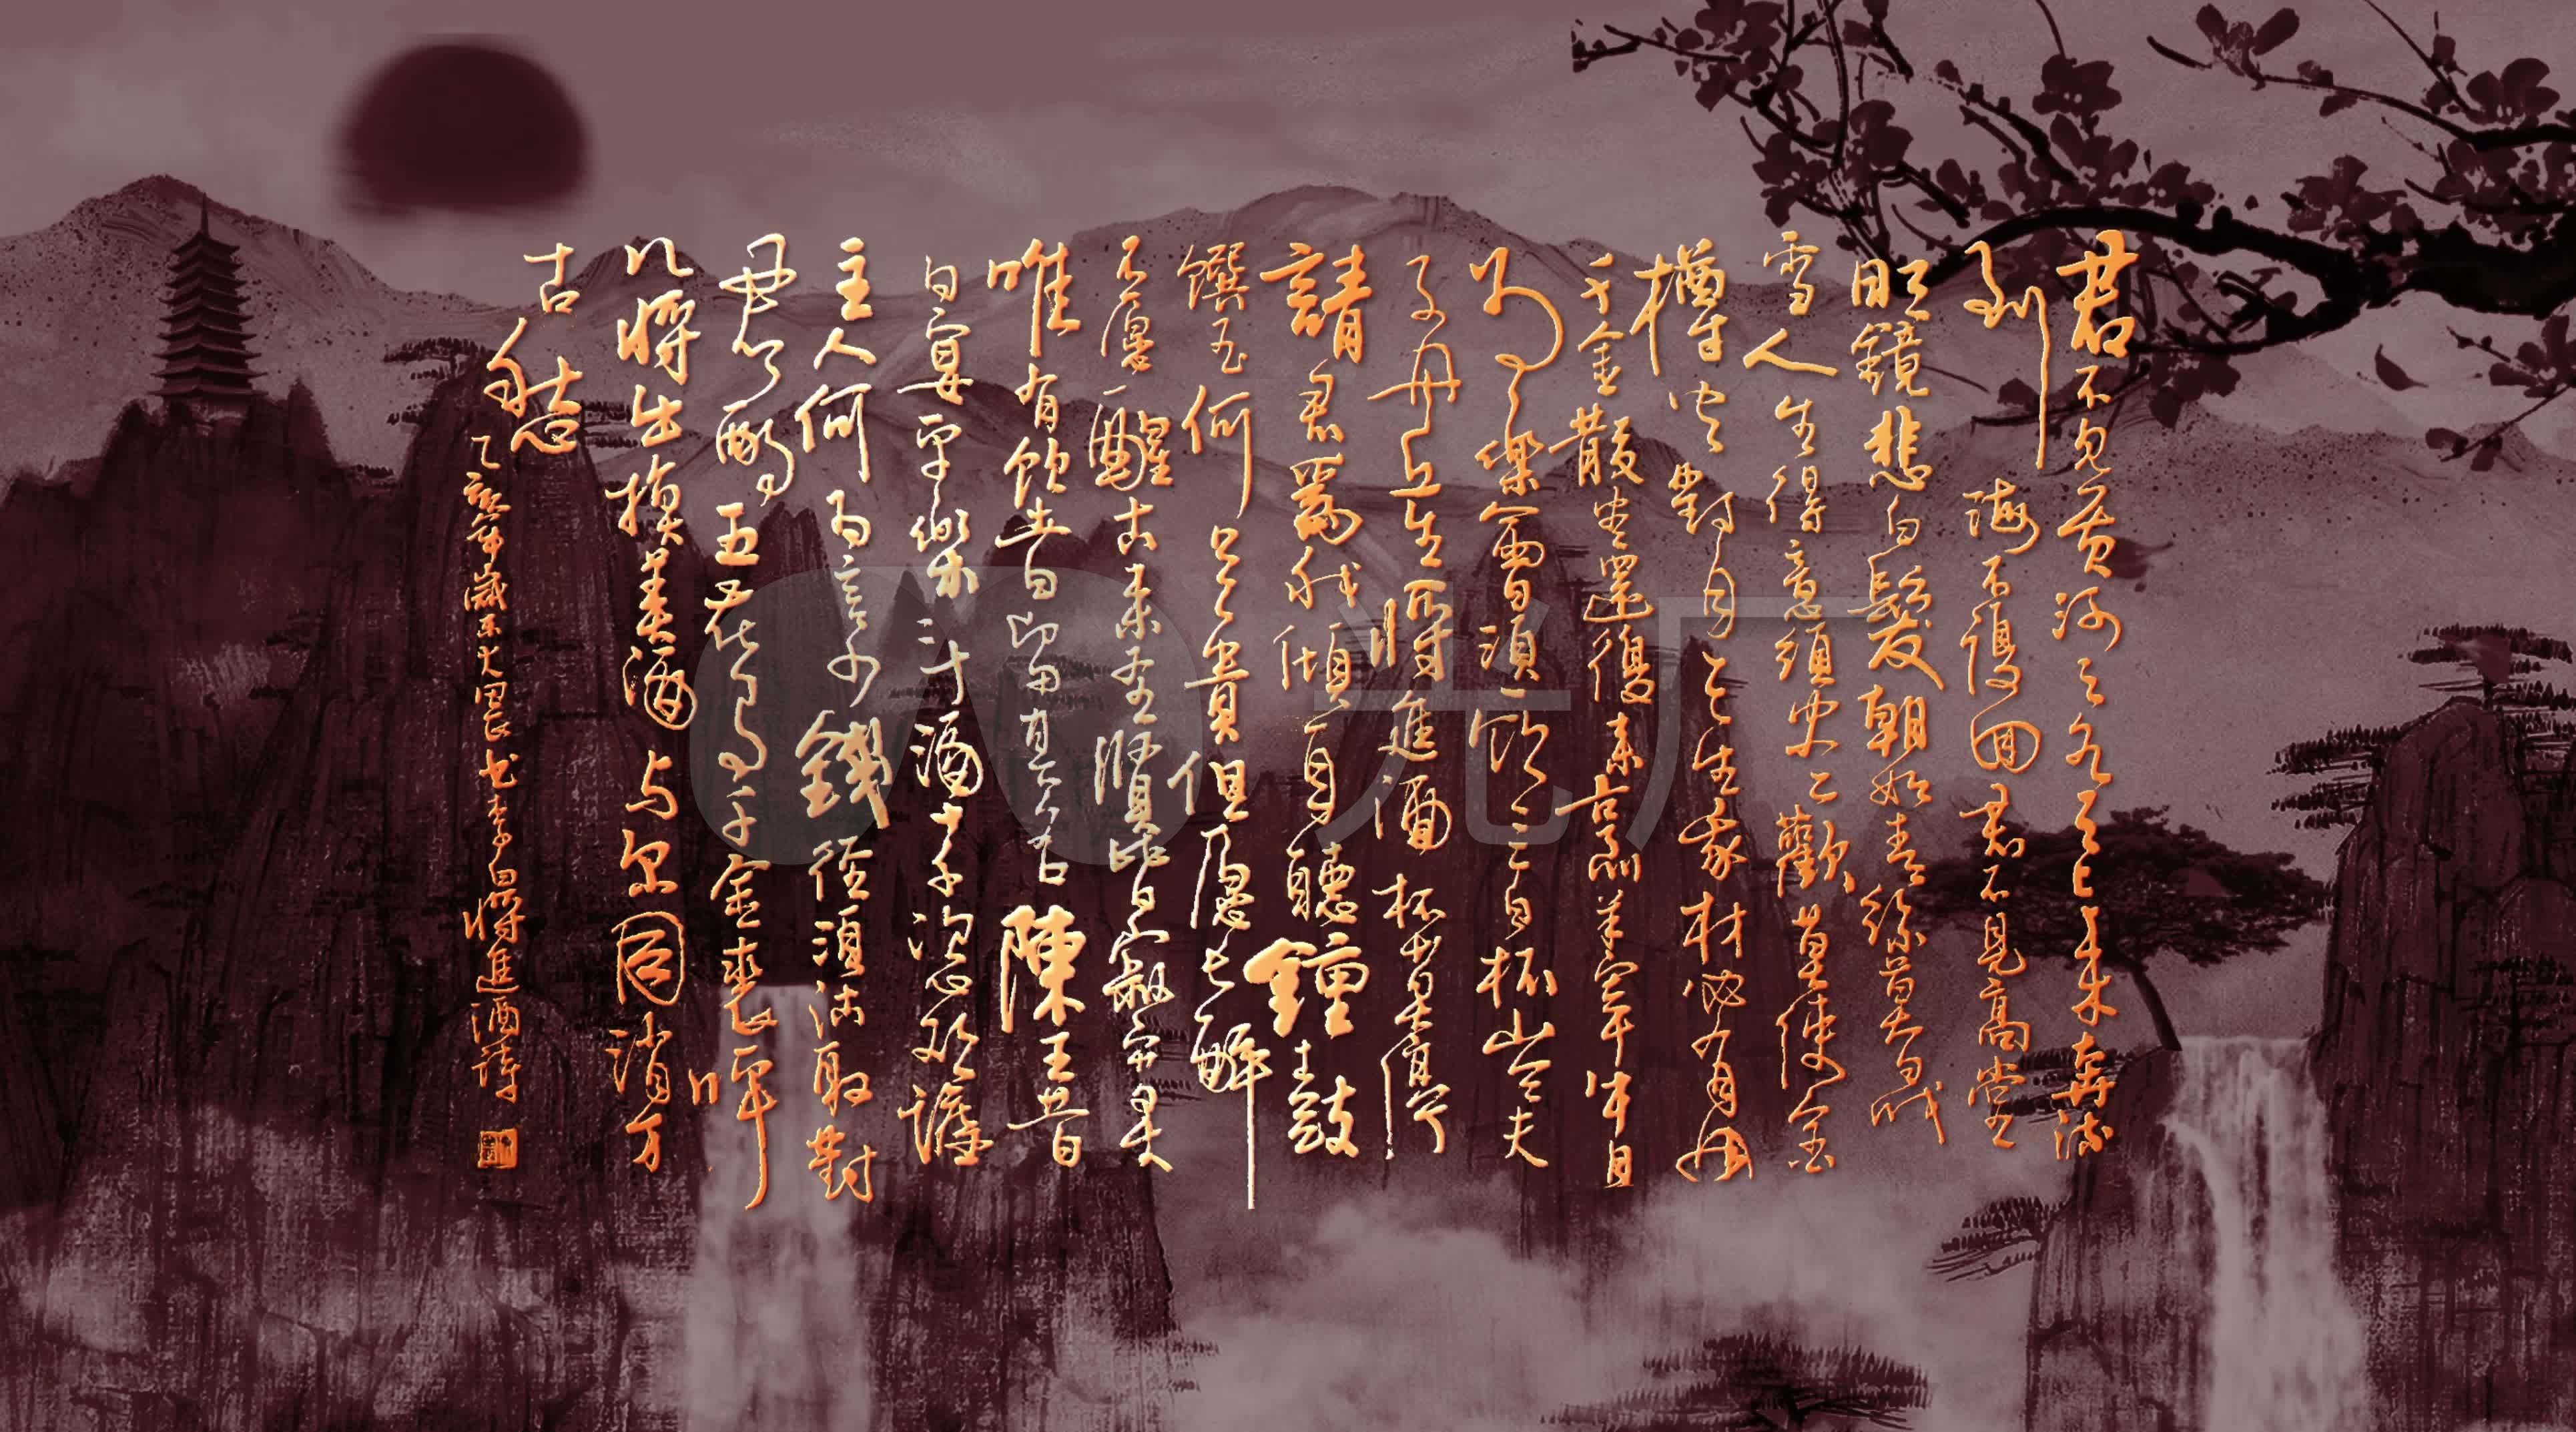 君不見黃河之水天上來奔流
到海不復回君不見高堂
明鏡悲白髮朝如青絲暮成
雪人生得意須盡歡莫使金
樽空對月天生我材必有用
千金散盡還復來烹羊宰牛且
為樂會須一飲三百杯岑夫
子丹丘生將進酒杯莫停
請君為我傾耳聽鐘鼓
饌玉何足貴但願長醉
不願醒古來聖賢皆寂寞
唯有飲者留其名陳王昔
日宴平樂斗酒十千恣歡謔
主人何為言少錢徑須沽取對
君酌五花馬千金裘呼
兒將出換美酒与尔同消万
古愁
乙 年歲 書李白將進酒詩
光厂